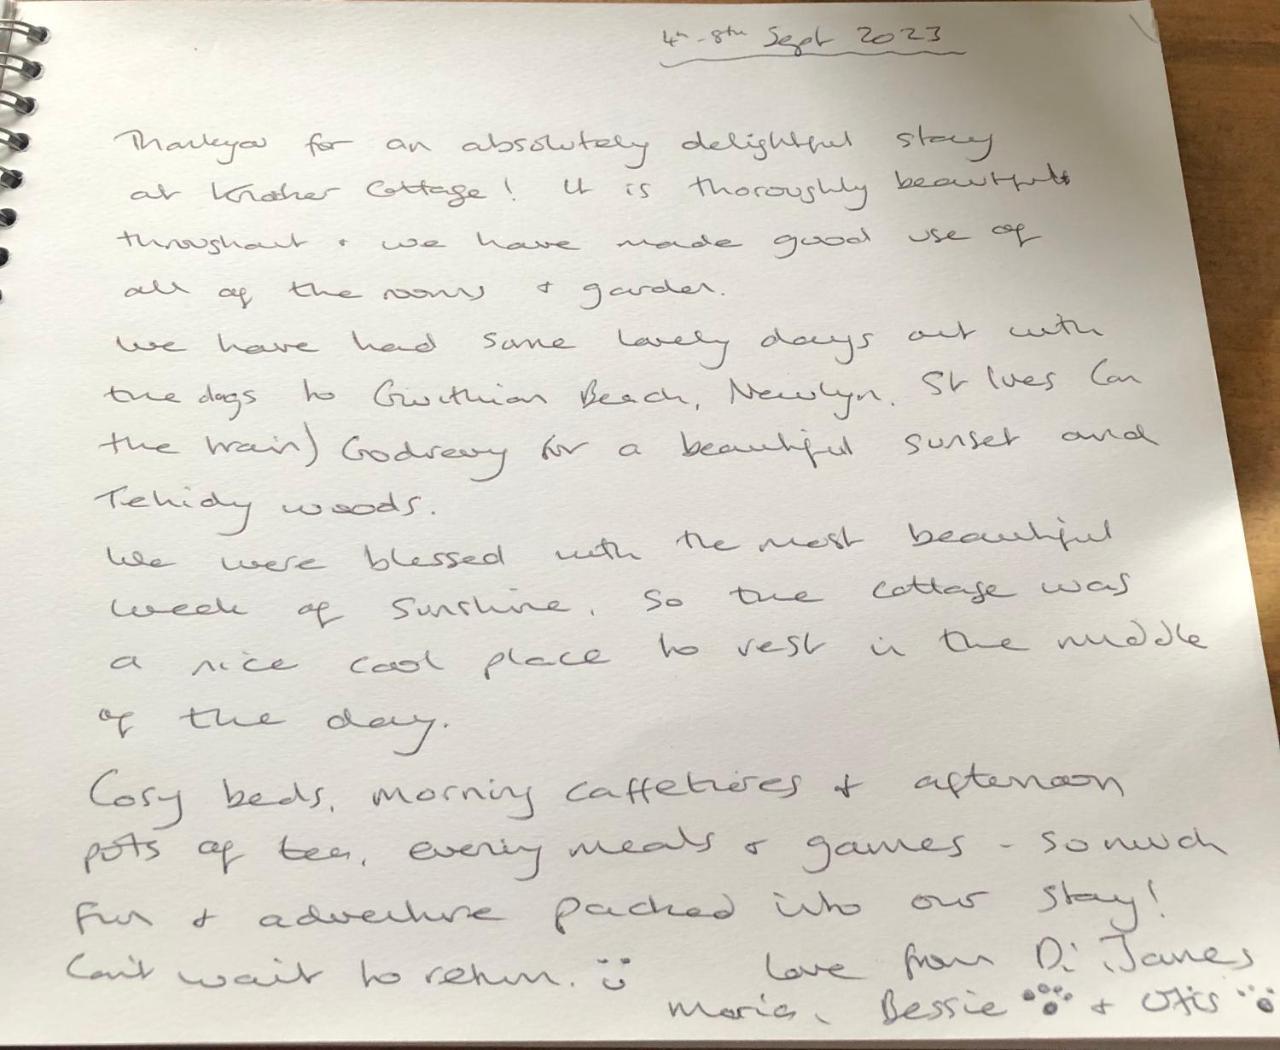 4th - 8th Sept 2023
Thankyou for an absolutely delightful stay
at Cottage! It is thoroughly beautiful
throughout & we have made good use of
all of the rooms & garden.
We have had some lovely days out with
the dogs to Gwithian Beach, Newlyn, St Ives (on
the train) Godrevy for a beautiful sunset and
Tehidy woods.
We were blessed with the most beautiful
week of sunshine, so the cottage was
a nice cool place to rest in the middle
of the day.
Cosy beds, morning caffetieres & afternoon
pots of tea, evening meals & games - so much
fun & adventure packed into our stay!
Can't wait to return. Love from Di, James
Maria, Bessie & Otis